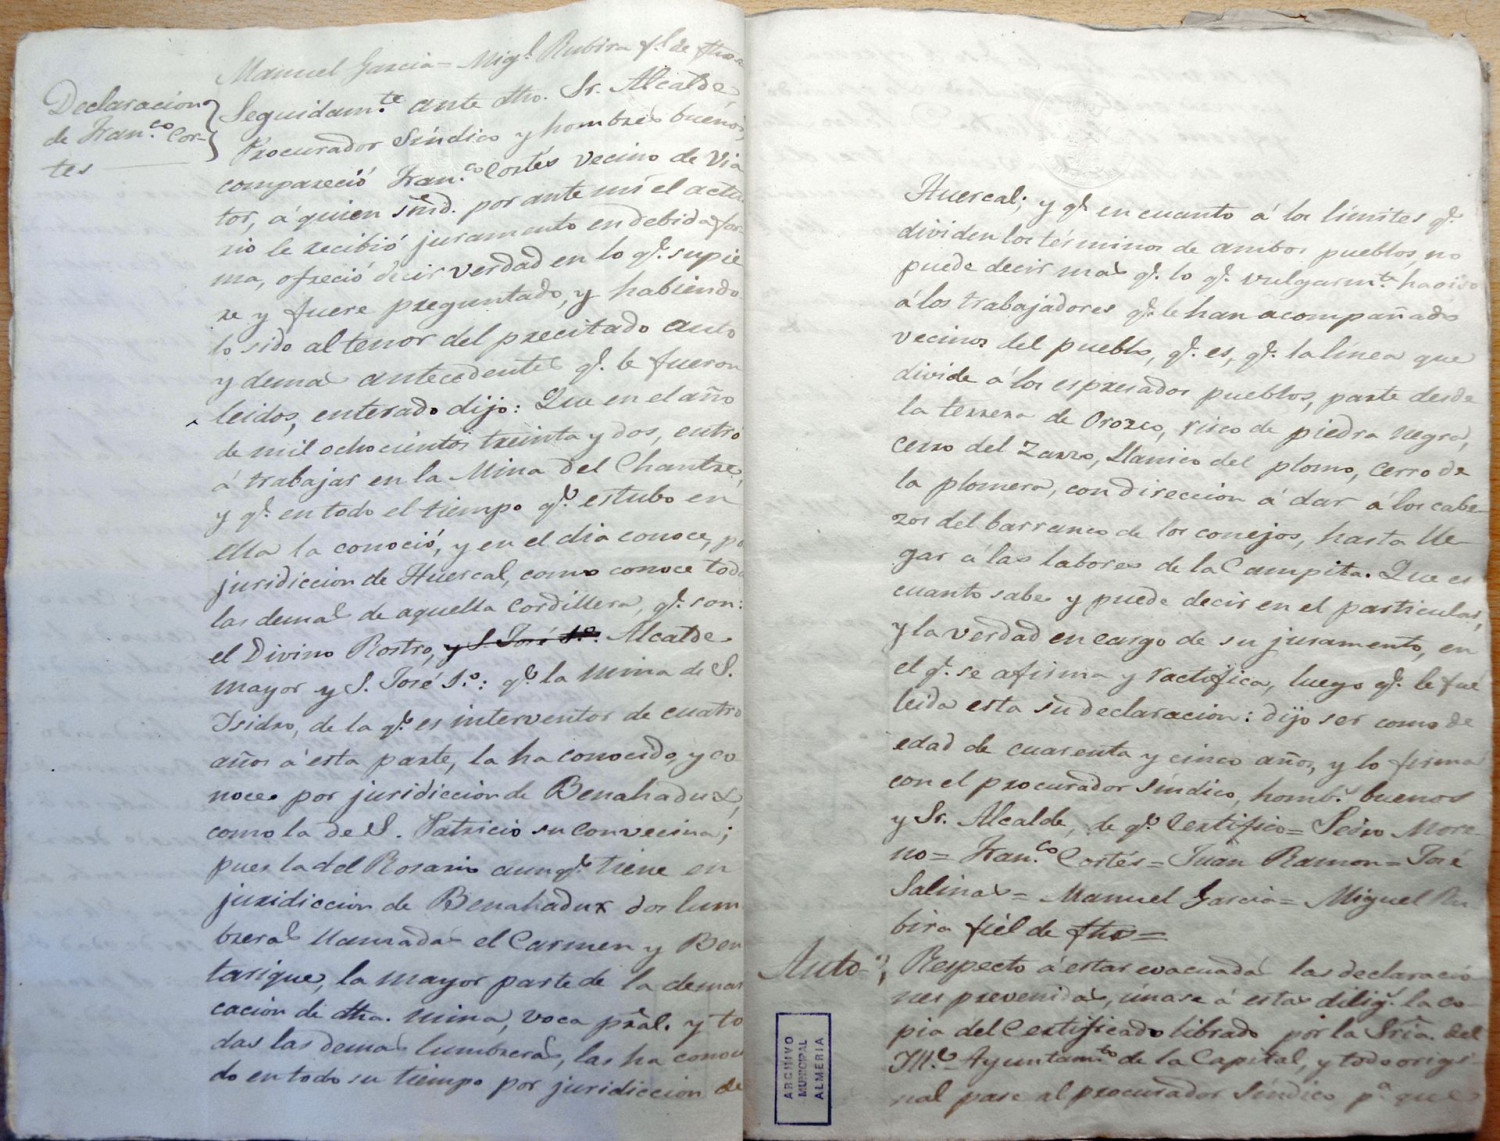 Manuel Garcia = Mig.l Rubira f.l de fhos
Declaracion
de Fran.co Cor-
tes
Seguidam.te ante dho. Sr. Alcalde,
Procurador Síndico y hombres buenos,
compareció Fran.co Cortés vecino de Via
tor, á quien smd. por ante mí el actua
rio le recibió juramento en debida for
ma, ofreció decir verdad en lo q.e supie
re y fuere preguntado, y habiendo
lo sido al tenor del precitado auto
y demas antecedentes q.e le fueron
leidos, enterado dijo: Que en el año
de mil ochocientos treinta y dos, entró
á trabajar en la Mina del Chantre,
y q.e en todo el tiempo q.e estubo en
ella la conoció, y en el dia conoce, po
juridiccion de Huercal, como conoce todas
las demas de aquella cordillera, q.e son:
el Divino Rostro, y S. José 1.º: Alcalde
mayor y S. José 1.º: q.e la mina de S.
Isidro, de la q.e es interventor de cuatro
años á esta parte, la ha conocido y co
noce por juridiccion de Benahadux,
como la de S. Patricio su convecina;
pues la del Rosario aunq.e tiene en
juridiccion de Benahadux dos lum
breras llamadas el Carmen y Ben
tarique, la mayor parte de la demar
cacion de dha. mina, voca pral. y to
das las demas lumbreras, las ha conoci
do en todo su tiempo por juridiccion de
Huercal; y q.e en cuanto á los límites q.e
dividen los términos de ambos pueblos, no
puede decir mas q.e lo q.e vulgarm.te ha oido
á los trabajadores q.e le han acompañado
vecinos del pueblo, q.e es, q.e la línea que
divide á los espresados pueblos, parte desde
la terrera de Orozco, risco de piedra negra,
cerro del Zarzo, Llanico del plomo, cerro de
la plomera, con direccion á dar á los cabe
zos del barranco de los conejos, hasta lle-
gar á las labores de la Campita. Que es
cuanto sabe y puede decir en el particular,
y la verdad en cargo de su juramento, en
el q.e se afirma y ractifica, luego q.e le fue
leida esta su declaracion: dijo ser como de
edad de cuarenta y cinco años, y lo firma
con el procurador síndico, homb.s buenos
y Sr. Alcalde, de q.e Certifico = Pedro More
no = Fran.co Cortés = Juan Ramon = José
Salinas = Manuel Garcia = Miguel Ru-
bira fiél de fhos =
Auto =
Respecto á estar evacuadas las declaracio
nes prevenidas, únase á estas dilig.s la co-
pia del Certificado librado por la Sría. del
Il.e Ayuntam.to de la Capital, y todo origi
nal pase al procurador Síndico p.a que
ARCHIVO
MUNICIPAL
ALMERIA